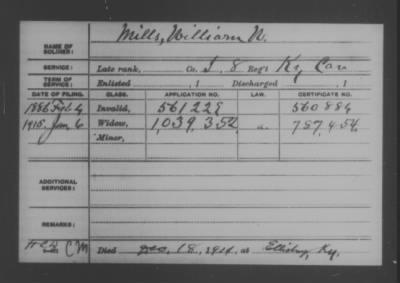 NAME OF SOLDIER: Mills, William N.
SERVICE: Late rank, Co. I, 8 Reg't Ky Cav
TERM OF SERVICE: Enlisted , 1 Discharged , 1
DATE OF FILING. CLASS. APPLICATION NO. LAW. CERTIFICATE NO.
1886 Feb 4 Invalid, 561229 560884
1915. Jan 6 Widow, 1,039,354 a. 787,454
Minor,
ADDITIONAL SERVICES:
REMARKS:
CM Died Dec. 18, 1914, at Ky.